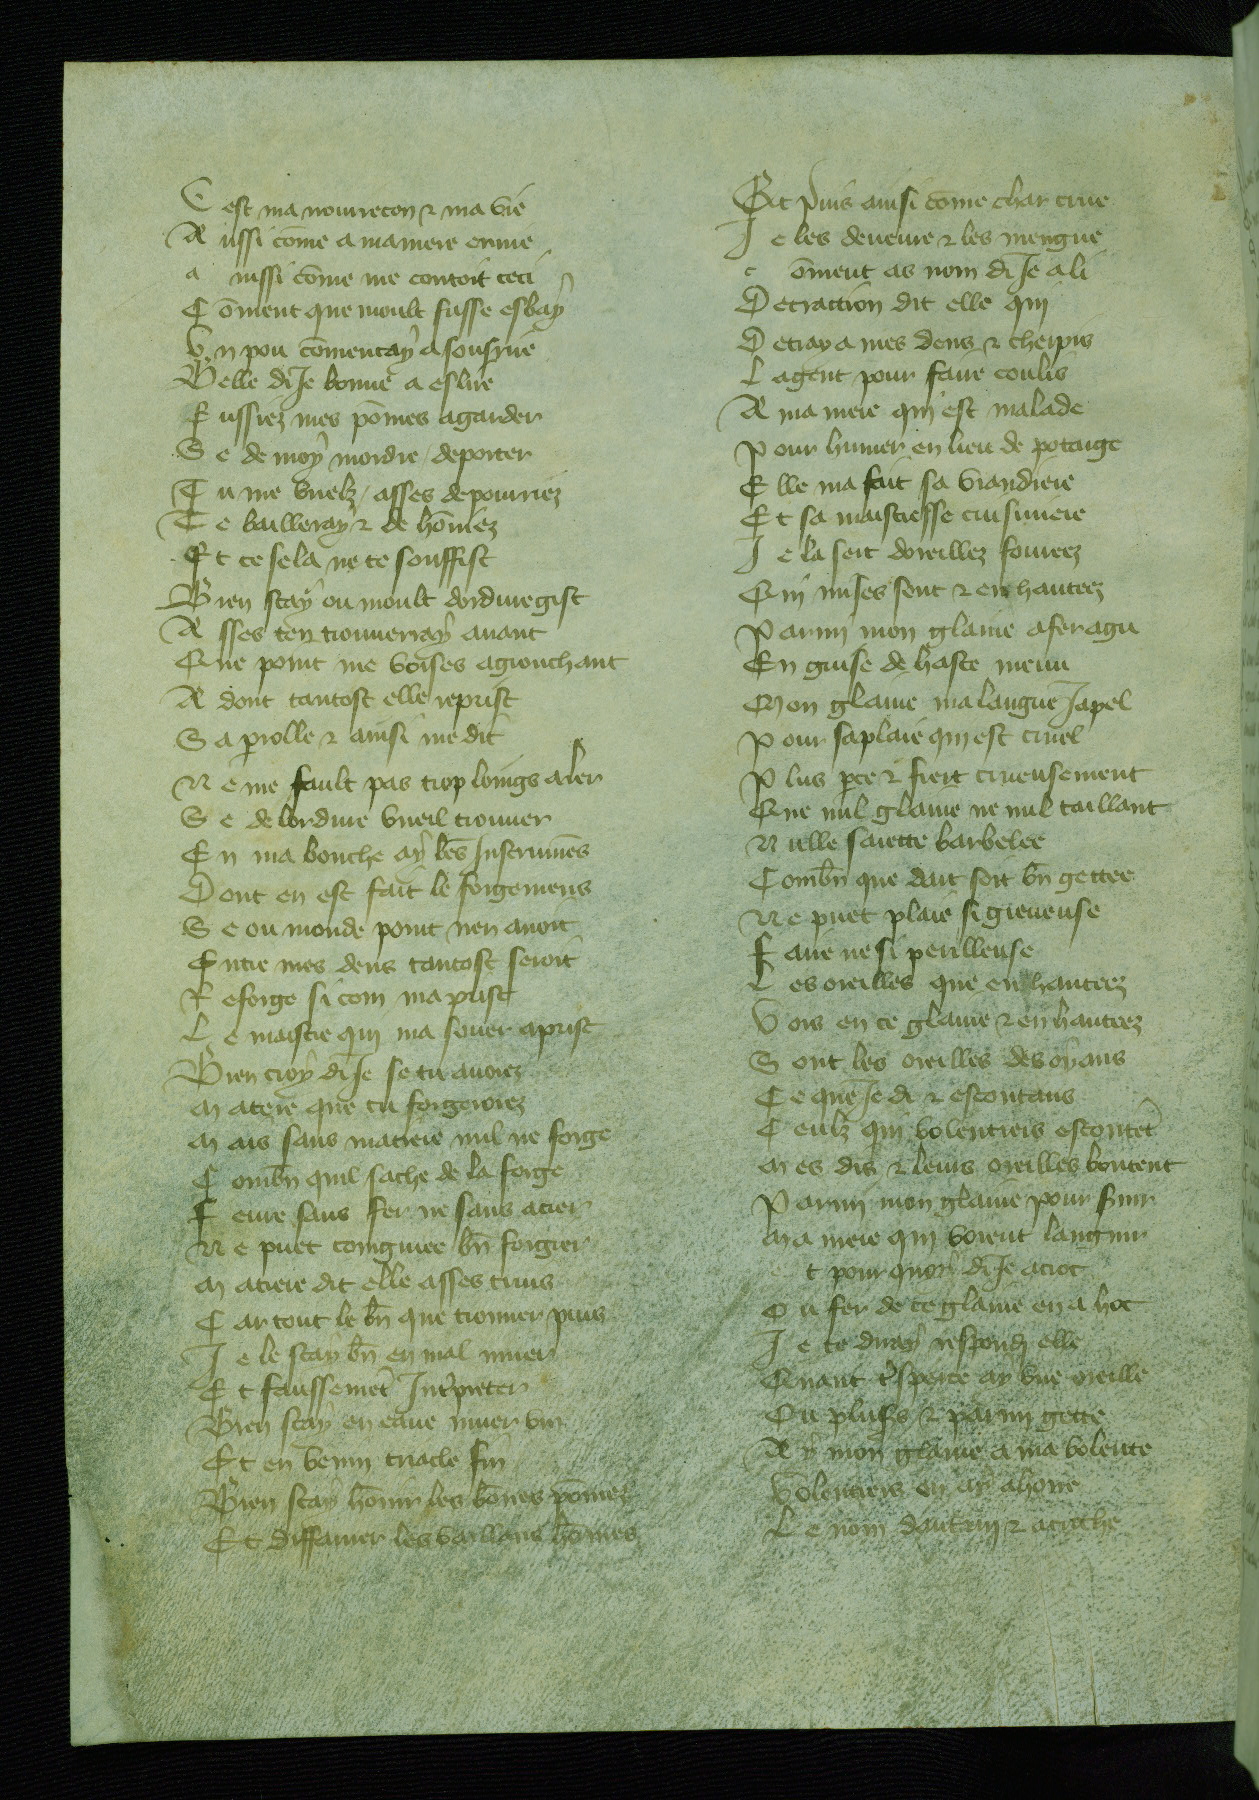 C est ma nourrecon & ma vie
A ussi cōme a ma mere envie
a inssi cōme me contoit ceci
C ōment que moult fusse esbay
U n pou cōmencay a sousrire
B elle di Je bonne a eslire
F ussiez mes pōmes a garder
S e de moy mordre / deporter
T u me vuelz / asses de pourriez
T e bailleray & de hōniez
E t ce se la ne te souffist
B ien scay ou moult dordure gist
A sses ten trouverray avant
Q ue point me voises agrouchant
A dont tantost elle reprist
S a parolle & ainsi me dit
N e me fault pas trop loings aler
S e de lordure vueil trouver
E n ma bouche ay les Instrumēs
D ont en est fait le forgemens
S e ou monde point nen avoit
E ntre mes dens tantost seroit
R eforge si com ma prist
L e maistre qui ma fever aprist
B ien croy di Je se tu avoiez
M atere que tu forgeroiez
M ais sans matiere nul ne forge
C ombn̄ quil sache de la forge
F evre sans fer ne sans acier
N e puet coingniee bn̄ forgier
M atiere dit elle asses truis
C ar tout le bn̄ que trouver puis
J e le scay bn̄ en mal muer
E t faussemēt Int'preter
B ien scay en eaue muer vin
E t en venin triacle fin
B ien scay hōnir les bōnes pōmez
E t diffamer les vaillans hōmes
Et puis ainsi cōme char crue
J e les deveure & les mengue
c ōment as nom di Je a li
D etraction dit elle qui
D etray a mes dens & cherpis
L a gent pour faire coulis
A ma mere qui est malade
P our humer en lieu de potaige
E lle ma fait sa viandiere
E t sa maistresse cuisiniere
J e la sert doreillez foureez
Q ui mises sont & enhanteez
P armi mon glaive aferagu
E n guise de haste menu
M on glaive ma langue Japel
P our sa plaie qui est cruel
P lus p̄ce & fiert crueusement
Q ue nul glaive ne nul taillant
N ulle saiette barbelee
C ombn̄ que dait soit bn̄ gettee
N e puet plaie si greveuse
F aire ne si perilleuse
L es oreilles que enhanteez
V ois en ce glaive & enhanteez
S ont les oreilles des oyans
C e que Je di & escoutans
C eulz qui volentiers escoutēt
M es dis & leurs oreilles boutent
P armi mon glaive pour servir
M a mere qui voient languir
e t pour quoy di Je a croc
O u fer de ce glaive en a hoc
J e te diray respond elle
Q uant t'spercee ay une oreille
O u plus's & parmi gette
A y mon glaive a ma volente
V olentiers on ay ahone
L e nom dautrui & acroche